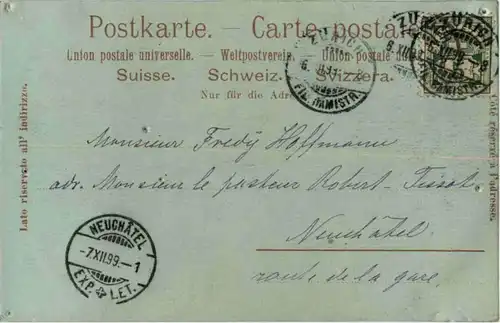 Postkarte. — Carte postale.
Union postale universelle. — Weltpostverein. — Union postale
Suisse. Schweiz. Svizzera.
Nur für die Adresse
Lato riservato all' indirizzo.
Côté réservé à l'adresse.
ZÜRICH
FIL. BAHNSTR.
Monsieur Fredy Hoffmann
adr. Monsieur le pasteur Robert-Tissot,
Neuchâtel
route de la gare.
NEUCHÂTEL
-7.XII.99.-1
EXP. LET.